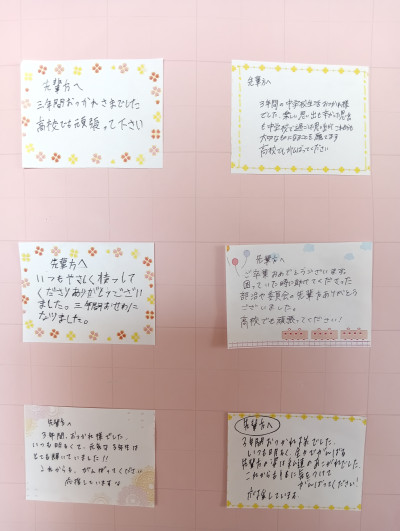 先輩方へ
三年間おつかれさまでした
高校でも頑張って下さい
先輩方へ
3年間の中学校生活おつかれ様
でした。楽しい思い出も
高校でもがんばってください
先輩方へ
いつもやさしく接して
くださりありがとうござい
ました。三年間おせわに
なりました。
先輩方へ
ご卒業おめでとうございます。
困っていた時に助けてくださった
部活や委員会の先輩方ありがとう
ございました。
高校でも頑張ってください!
先輩方へ
3年間、おつかれ様でした。
いつも明るくて、元気な3年生は
とても輝いていました!!
これからも、がんばってください
応援しています
先輩方へ
3年間おつかれ様でした。
いつも明るく、
先輩方の姿は私達のあこがれでした。
これからも
がんばってください!
応援しています。